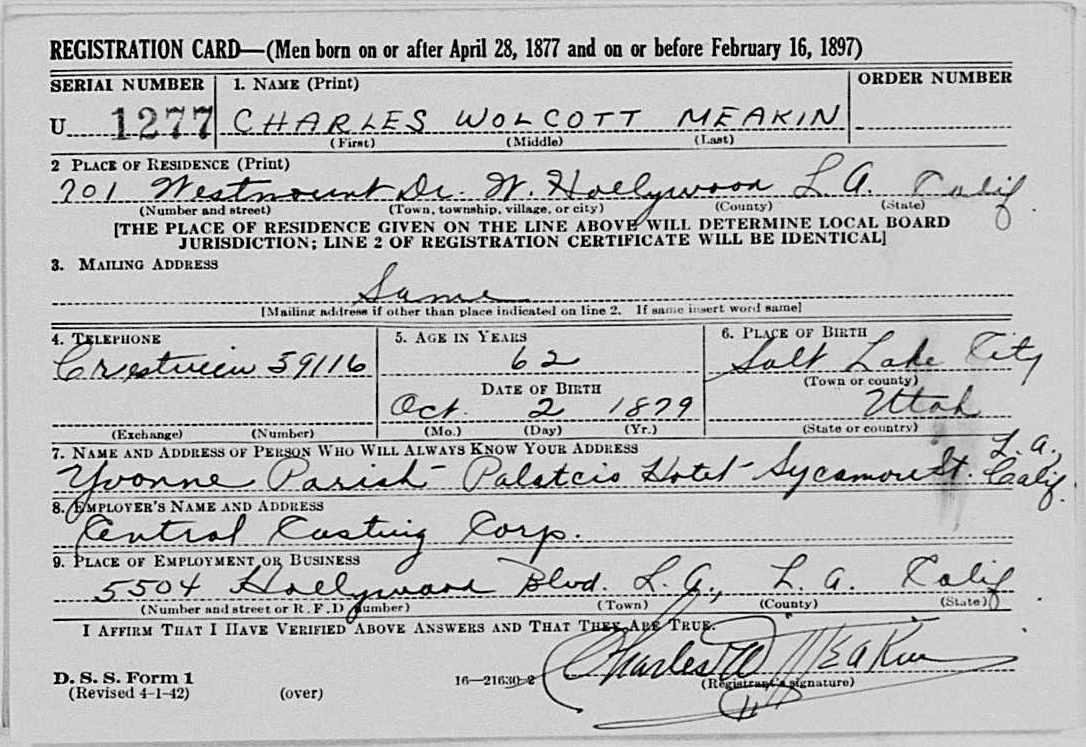 REGISTRATION CARD—(Men born on or after April 28, 1877 and on or before February 16, 1897)
SERIAL NUMBER 1. NAME (Print) ORDER NUMBER
U 1277 CHARLES WOLCOTT MEAKIN
(First) (Middle) (Last)
2 PLACE OF RESIDENCE (Print)
701 Westmount Dr. W. Hollywood L.A. Calif.
(Number and street) (Town, township, village, or city) (County) (State)
[THE PLACE OF RESIDENCE GIVEN ON THE LINE ABOVE WILL DETERMINE LOCAL BOARD
JURISDICTION; LINE 2 OF REGISTRATION CERTIFICATE WILL BE IDENTICAL]
3. MAILING ADDRESS
Same
[Mailing address if other than place indicated on line 2. If same insert word same]
4. TELEPHONE 5. AGE IN YEARS 6. PLACE OF BIRTH
Crestview 59116 62 Salt Lake City
DATE OF BIRTH (Town or county)
Oct. 2 1879 Utah
(Exchange) (Number) (Mo.) (Day) (Yr.) (State or country)
7. NAME AND ADDRESS OF PERSON WHO WILL ALWAYS KNOW YOUR ADDRESS
Yvonne Parish - Hotel - Sycamore St. L.A., Calif.
8. EMPLOYER'S NAME AND ADDRESS
Central Casting Corp.
9. PLACE OF EMPLOYMENT OR BUSINESS
5504 Hollywood Blvd. L.A., L.A. Calif
(Number and street or R. F. D. number) (Town) (County) (State)
I AFFIRM THAT I HAVE VERIFIED ABOVE ANSWERS AND THAT THEY ARE TRUE.
Charles W Meakin
D. S. S. Form 1 16—21630-2 (Registrant's signature)
(Revised 4-1-42) (over)